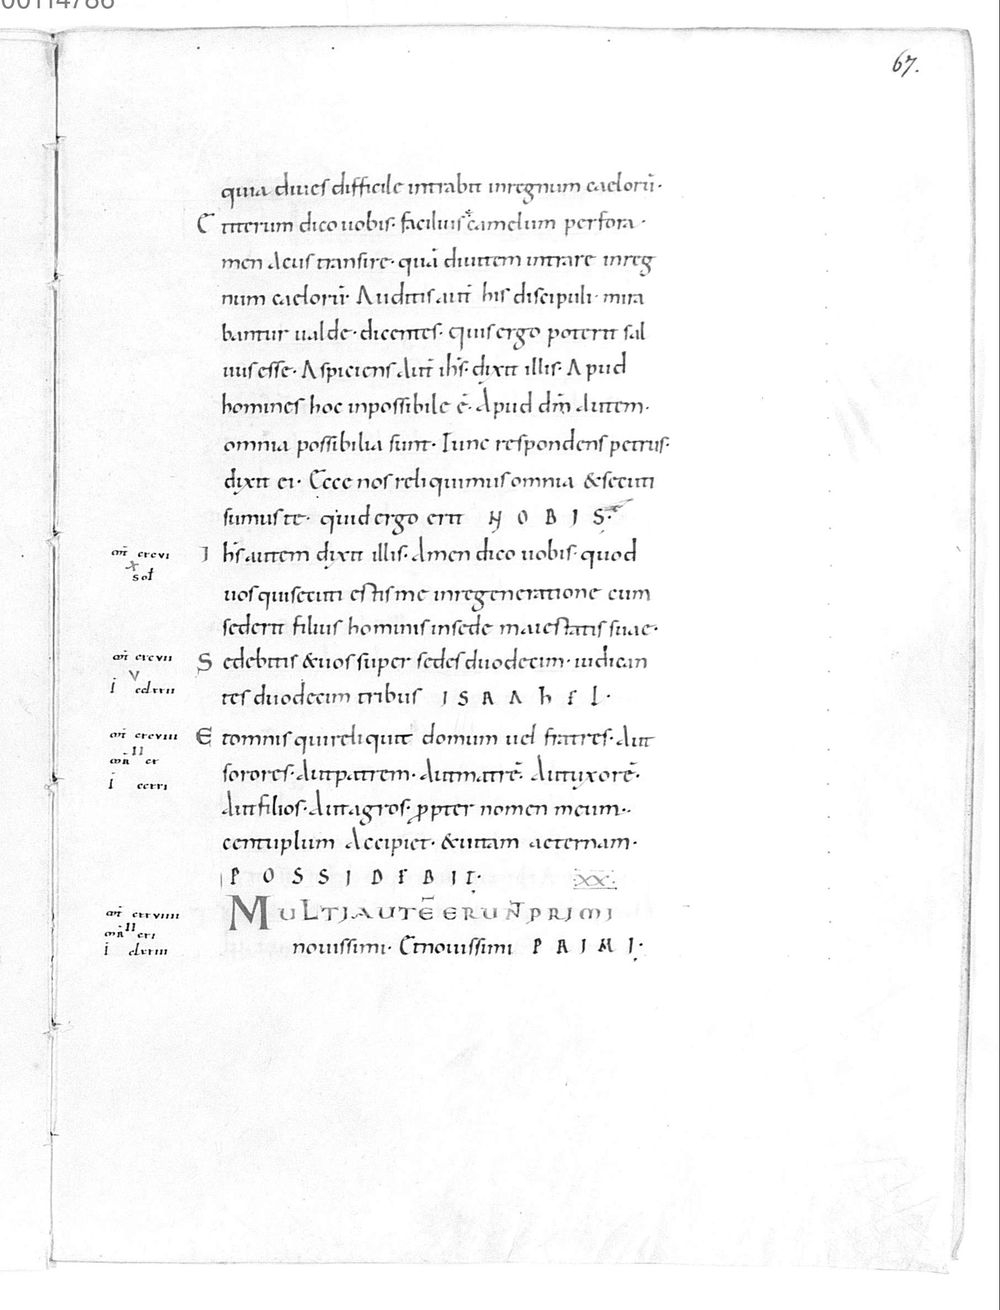 00114786
67.
quia diues difficile intrabit inregnum caelorū·
Etiterum dico uobis· facilius camelum perfora·
men acus transire· quā diuitem intrare inreg
num caelorū· Auditis aut̄ his discipuli· mira
bantur ualde· dicentes· quis ergo poterit sal
uus esse· Aspiciens aut̄ ih̄s· dixit illis· Apud
homines hoc inpossibile ē· Apud dm̄ autem·
omnia possibilia sunt· Tunc respondens petrus·
dixit ei· Ecce nos reliquimus omnia &secuti
sumus te· quid ergo erit NOBIS·
Ih̄s autem dixit illis· Amen dico uobis· quod
uos qui secuti estis me inregeneratione cum
sederit filius hominis insede maiestatis suae·
Sedebitis &uos super sedes duodecim· iudican
tes duodecim tribus ISRAhEL·
Et omnis qui reliquit domum uel fratres· aut
sorores· aut patrem· aut matrē· aut uxorē·
aut filios· aut agros· ꝓpter nomen meum·
centuplum accipiet· &uitam aeternam·
POSSIDEBIT· XX
MULTI AUTĒ ERUNT PRIMI
nouissimi· Et nouissimi PRIMI·
mt̄ cxcvi
x
sol
mt̄ cxcvii
v
l clxxii
mt̄ cxcviii
II
mr̄ cx
l ccxxi
mt̄ cxcviiii
II
mr̄ cxi
l clxxiii